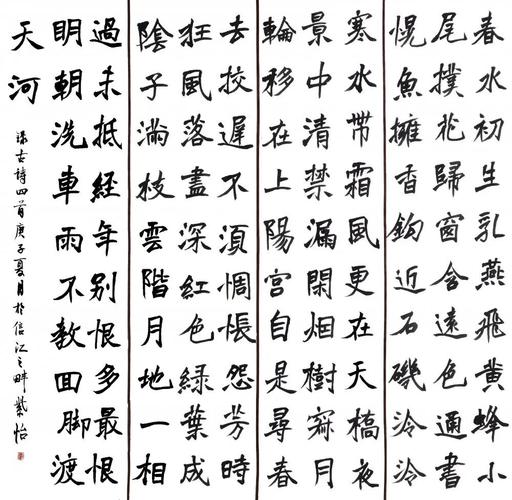 春水初生乳燕飛黄蜂小
尾撲花歸窗含遠色通書
幌魚擁香鈎近石磯泠泠
寒水帶霜風更在天橋夜
景中清禁漏閑烟樹寂月
輪移在上陽宮自是尋春
去挍遲不須惆悵怨芳時
狂風落盡深紅色綠葉成
陰子滿枝雲階月地一相
過未抵經年别恨多最恨
明朝洗車雨不教回脚渡
天河
録古詩四首庚子夏月於信江之畔紫怡